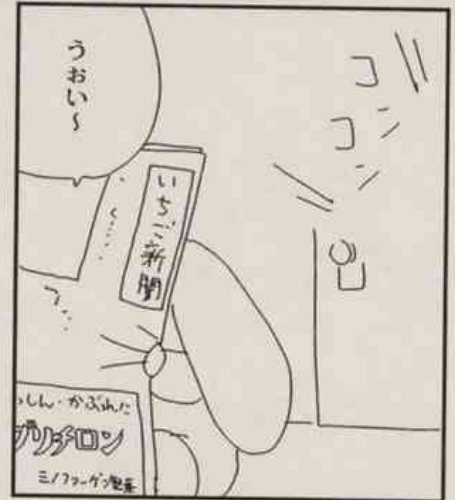 コ
コ
うおい〜
いちご新聞
っしん・かぶれに
グリチロン
ミノファーゲン製薬